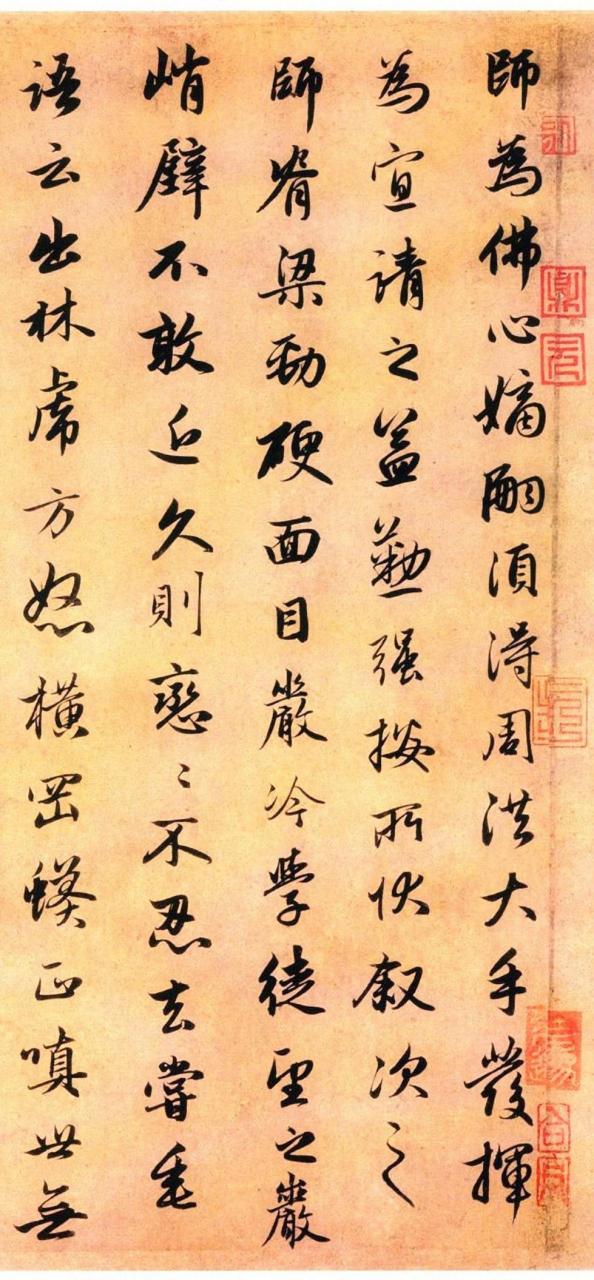 師為佛心嫡嗣須得周洪大手發揮
為宣請之益懃强掇所伏叙次之
師脊梁勁硬面目嚴冷學徒望之巖
峭壁不敢近久則戀〻不忍去嘗垂
語云出林虎方怒橫岡蟒正嗔世無